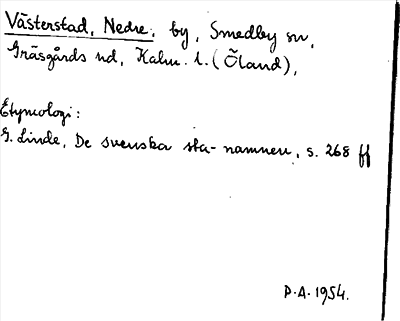 Västerstad, Nedre, by, Smedby sn,
Gräsgårds hd, Kalm. l. (Öland),
Etymologi:
G. Linde, De svenska sta-namnen, s. 268 ff
P.A. 1954.